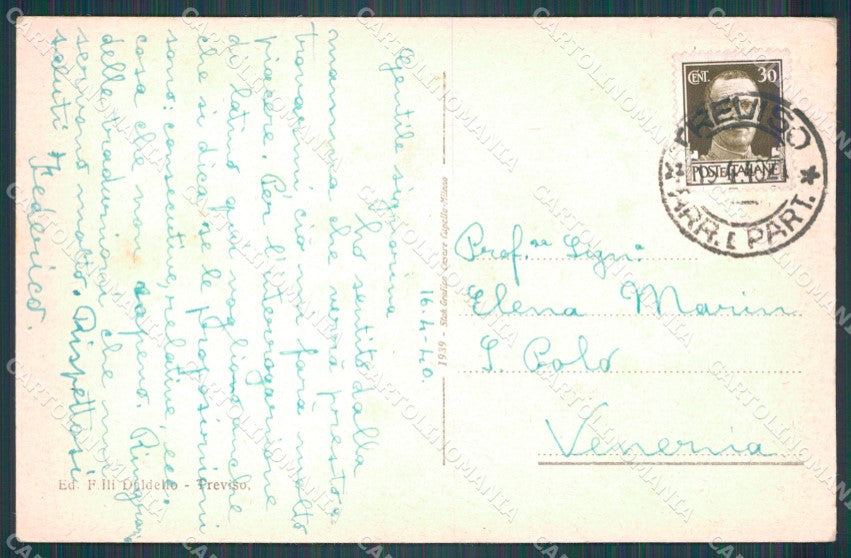 16-4-40.
Gentile signorina
ho sentito dalla
mamma che verrà presto a
trovarmi, ciò mi farà molto
piacere. Per l'interrogazione
di latino qui vogliono anche
che si dica se le proposizioni
sono: consecutive, relative, ecc.
cosa che non sapevo. Ringrazio
delle traduzioni che mi
servono molto. Rispettosi
saluti Federico.
Prof.ssa Sign.a
Elena Marin
S. Polo
Venezia
CENT. 30
POSTE ITALIANE
TREVISO
ARR. E PART.
1939 - Stab. Grafico Cesare Capello-Milano
Ed. F.lli Duldello - Treviso.
CARTOLINOMANIA